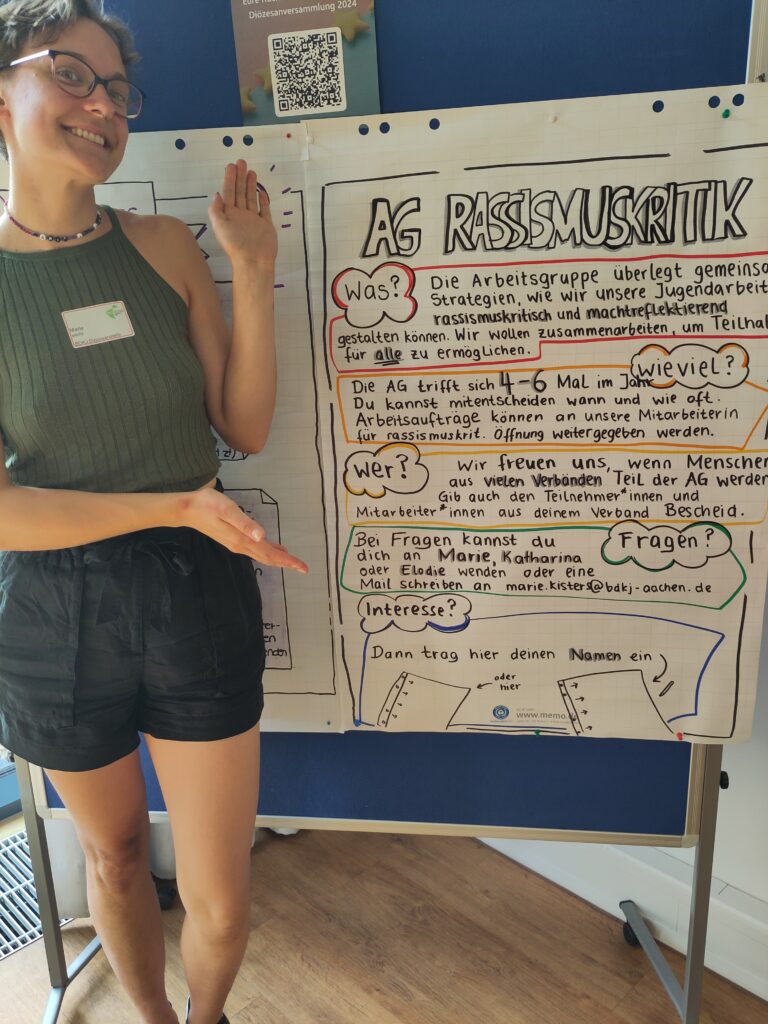 Diözesanversammlung 2024
Marie
BDKJ Diözesanstelle
AG RASSISMUSKRITIK
Was?
Die Arbeitsgruppe überlegt gemeinsa
Strategien, wie wir unsere Jugendarbeit
rassismuskritisch und machtreflektierend
gestalten können. Wir wollen zusammenarbeiten, um Teilha
für alle zu ermöglichen.
wieviel?
Die AG trifft sich 4-6 Mal im Jahr
Du kannst mitentscheiden wann und wie oft.
Arbeitsaufträge können an unsere Mitarbeiterin
für rassismuskrit. Öffnung weitergegeben werden.
wer?
Wir freuen uns, wenn Menschen
aus vielen Verbänden Teil der AG werden
Gib auch den Teilnehmer*innen und
Mitarbeiter*innen aus deinem Verband Bescheid.
Fragen?
Bei Fragen kannst du
dich an Marie, Katharina
oder Elodie wenden oder eine
Mail schreiben an marie.kisters@bdkj-aachen.de
Interesse?
Dann trag hier deinen Namen ein
oder
hier
www.memo.d